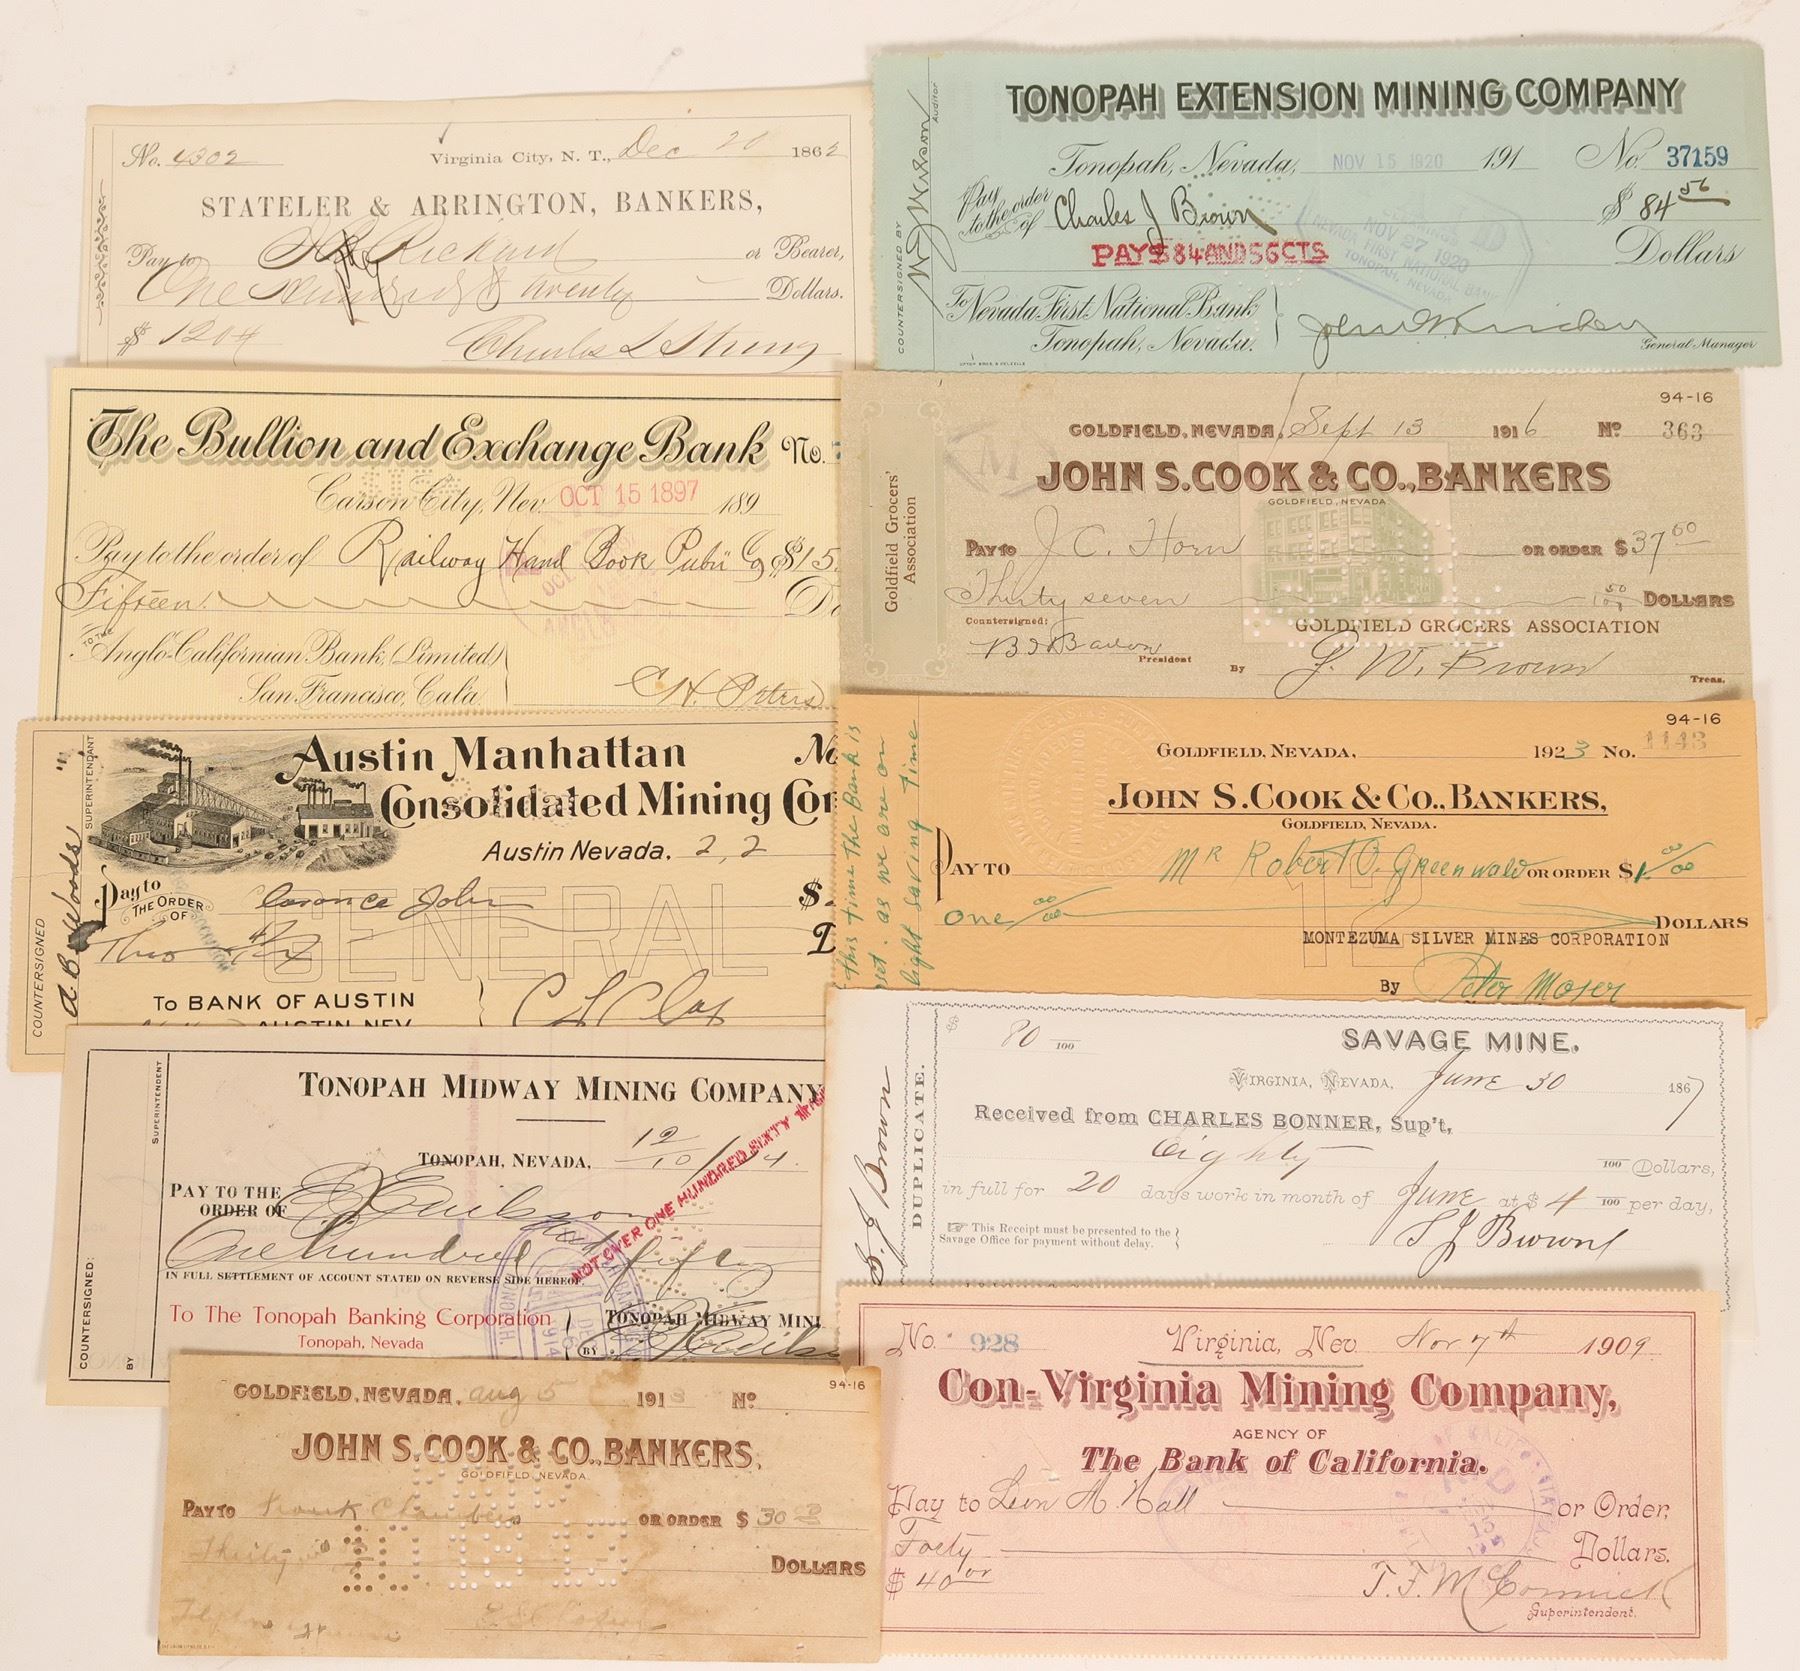 No. 4302 Virginia City, N. T., Dec 20 1862
STATELER & ARRINGTON, BANKERS,
Pay to Rickard or Bearer,
One Hundred & twenty Dollars.
$ 1204
Charles L Strong
TONOPAH EXTENSION MINING COMPANY
Tonopah, Nevada, NOV 15 1920 191 No. 37159
Pay to the order of Charles J Brown $ 84 56
PAYS $84 AND 56 CTS Dollars
NOV 27 1920
NEVADA FIRST NATIONAL BANK
TONOPAH, NEVADA
To Nevada First National Bank
Tonopah, Nevada.
General Manager
COUNTERSIGNED BY
Auditor
The Bullion and Exchange Bank No.
Carson City, Nev. OCT 15 1897 189
Pay to the order of Railway Hand Book Pub'g Co $15.
Fifteen
TO THE
Anglo-Californian Bank, (Limited)
San Francisco, Cala.
C. H. Peters
94-16
GOLDFIELD, NEVADA, Sept 13 1916 No 363
JOHN S. COOK & CO., BANKERS
GOLDFIELD, NEVADA.
PAY TO J. C. Horn OR ORDER $ 37 50
Thirty seven 50/100 DOLLARS
GOLDFIELD GROCERS ASSOCIATION
Countersigned:
President
By G. W. Brown
Treas.
Goldfield Grocers' Association
M
Austin Manhattan No
Consolidated Mining Com
Austin Nevada. 2, 2
Pay to THE ORDER OF Clarence John $
GENERAL
TO BANK OF AUSTIN
AUSTIN, NEV
COUNTERSIGNED
A. B. Woods
SUPERINTENDENT
94-16
GOLDFIELD, NEVADA, 1923 No. 1143
JOHN S. COOK & CO., BANKERS,
GOLDFIELD, NEVADA.
PAY TO Mr Robert O. Greenwald OR ORDER $ 1 00/00
One 00/00 DOLLARS
MONTEZUMA SILVER MINES CORPORATION
12
By Peter Moser
this time the Bank is
set. as we are on
light saving time
TONOPAH MIDWAY MINING COMPANY
TONOPAH, NEVADA, 12/10/14.
PAY TO THE ORDER OF
One hundred and fifty
IN FULL SETTLEMENT OF ACCOUNT STATED ON REVERSE SIDE HEREOF
NOT OVER ONE HUNDRED SIXTY
To The Tonopah Banking Corporation
Tonopah, Nevada
TONOPAH MIDWAY MINI
BY
COUNTERSIGNED:
BY
SUPERINTENDENT
$ 80 /100
SAVAGE MINE.
VIRGINIA, NEVADA, June 30 1867
Received from CHARLES BONNER, Sup't,
Eighty /100 Dollars,
in full for 20 days work in month of June at $ 4 /100 per day,
This Receipt must be presented to the
Savage Office for payment without delay.
S J Brown
DUPLICATE.
S. J Brown
94-16
GOLDFIELD, NEVADA, Aug 5 1913 No
JOHN S. COOK & CO., BANKERS,
GOLDFIELD, NEVADA
PAY TO Frank Chambers OR ORDER $ 30
Thirty DOLLARS
No. 928 Virginia, Nev Nov 7th 1909
Con-Virginia Mining Company,
AGENCY OF
The Bank of California.
Pay to Leon M. Hall or Order,
Forty Dollars.
$ 40
T. F. McCormick
Superintendent.